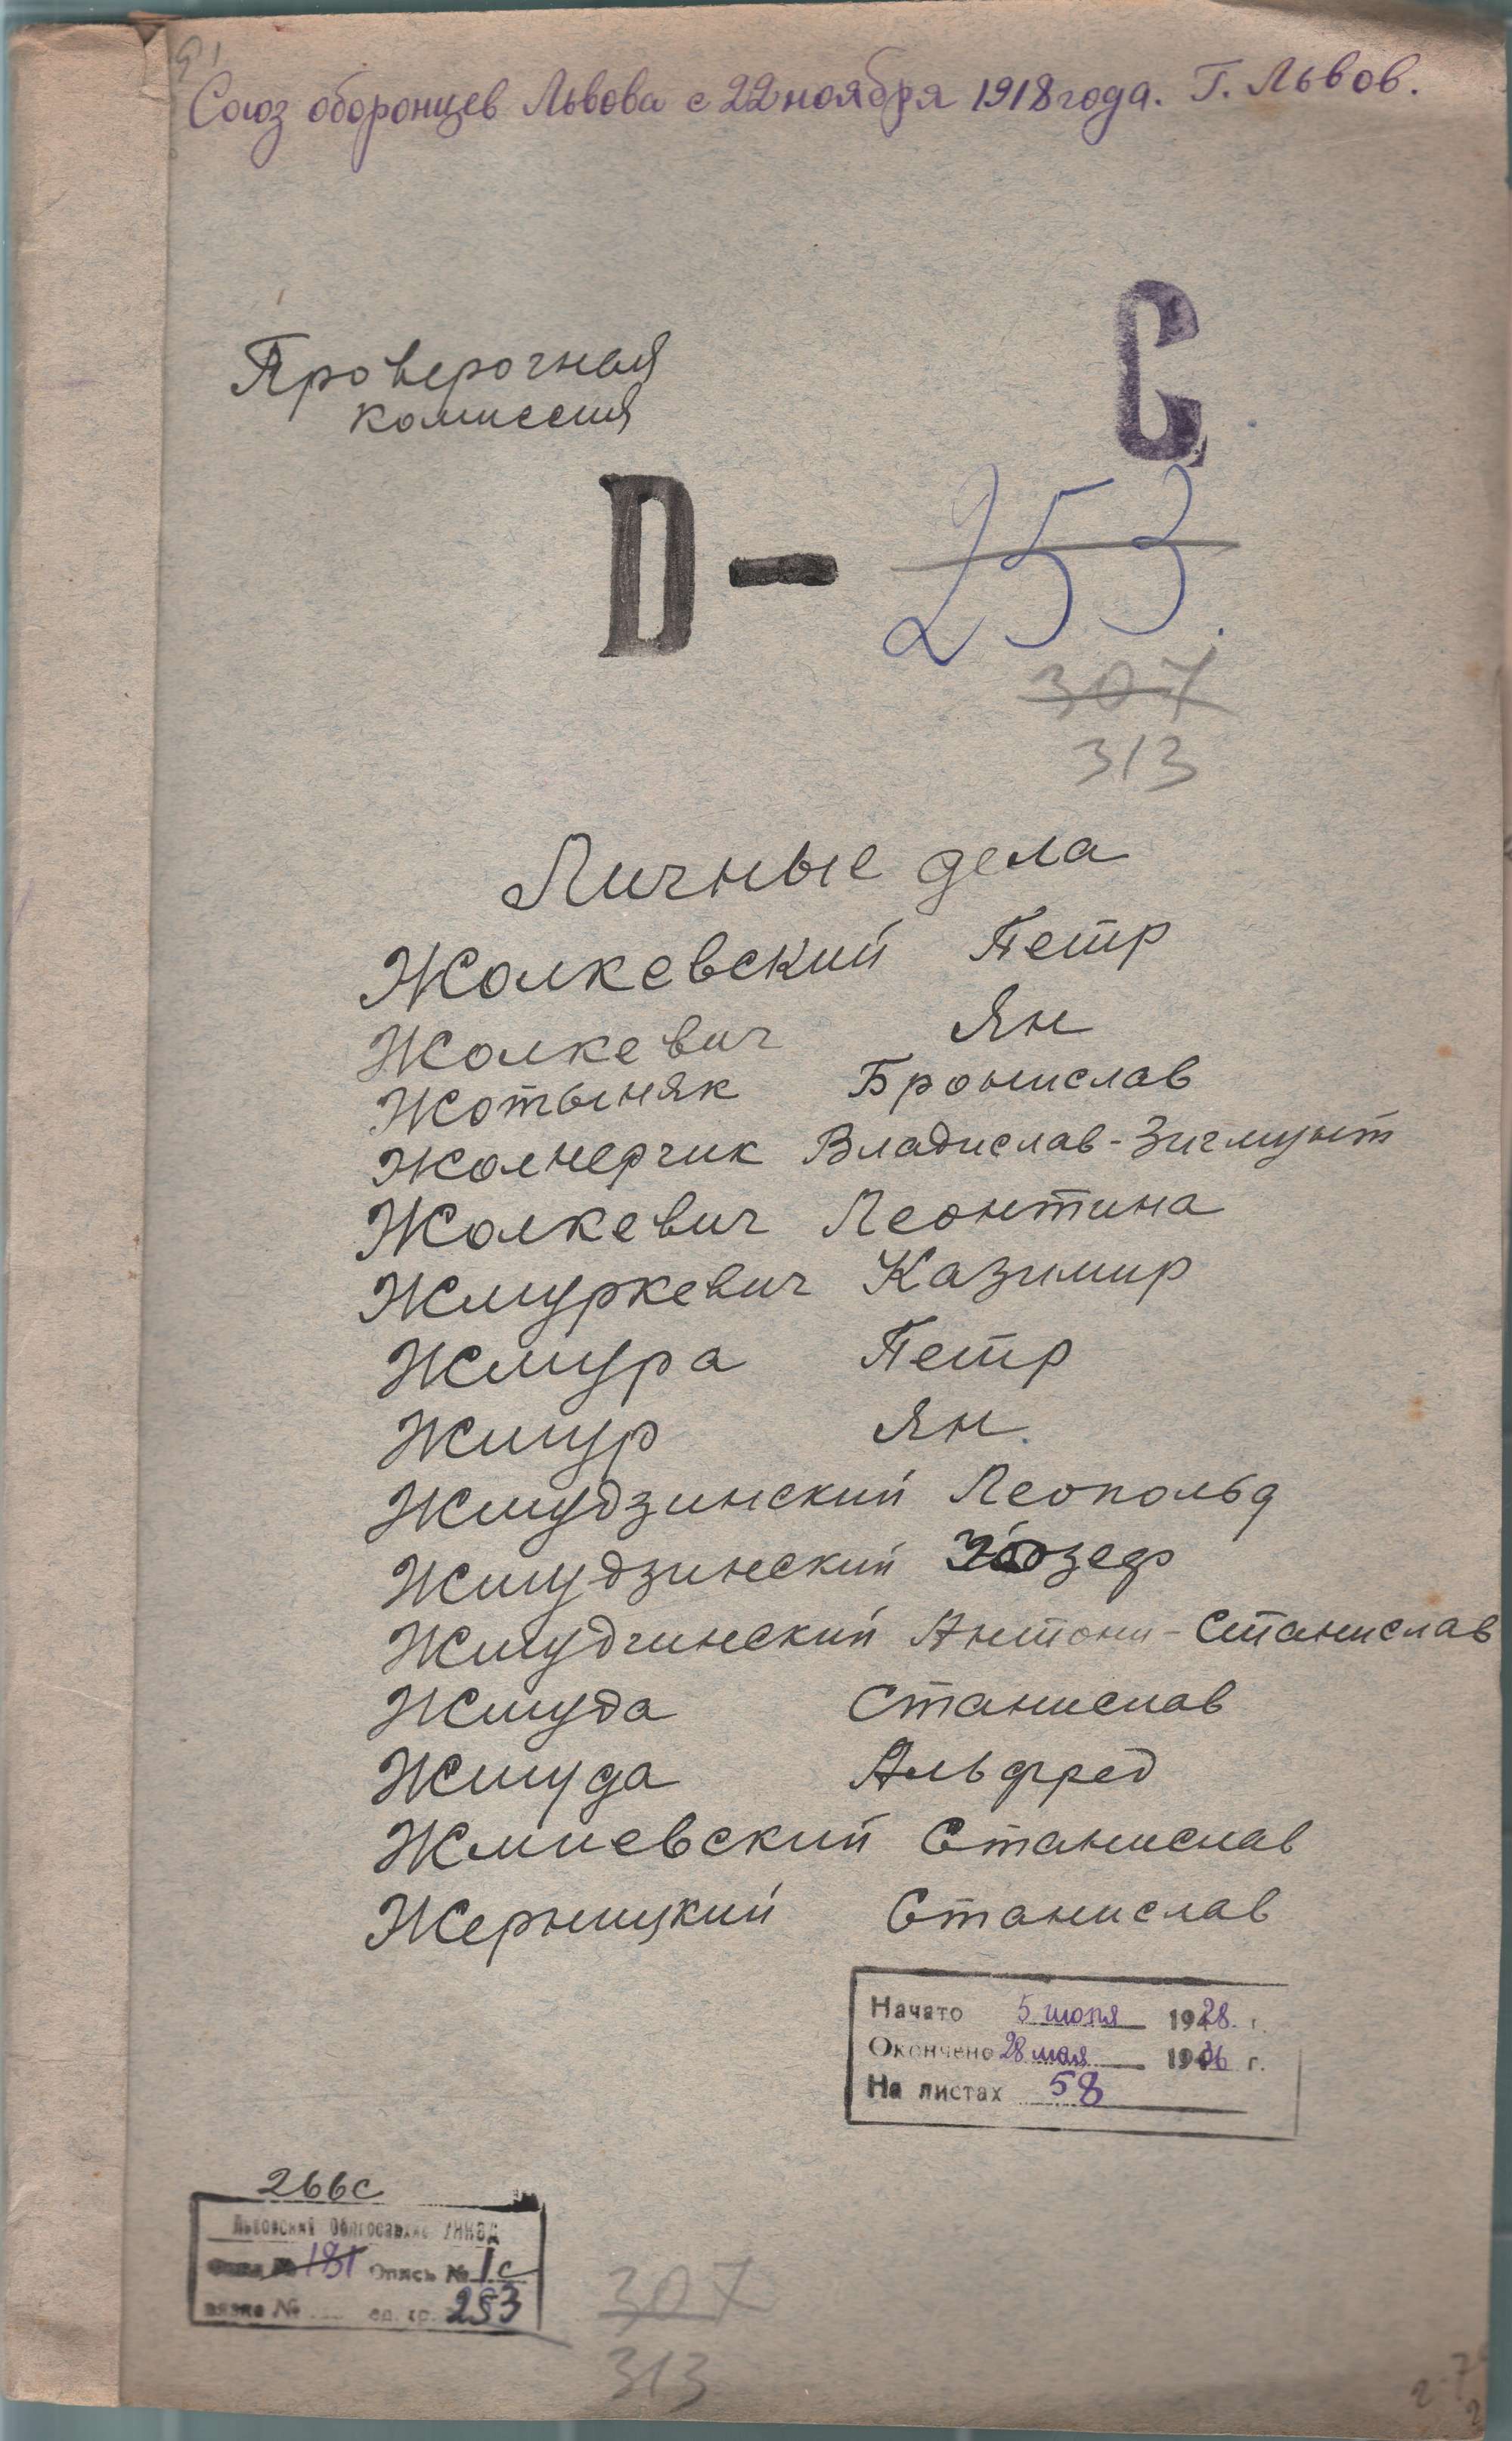 Союз оборонцев Львова с 22 ноября 1918 года. Г. Львов.
Проверочная
комиссия
С
D -
253.
307
313
Личные дела
Жолкевский Петр
Жолкевич Ян
Жотыняк Бронислав
Жолнерчик Владислав-Зигмунт
Жолкевич Леонтина
Жмуркевич Казимир
Жмура Петр
Жмур Ян
Жмудзинский Леопольд
Жмудзинский Юзеф
Жмудчинский Антони-Станислав
Жмуда Станислав
Жмуда Альфред
Жмиевский Станислав
Жерницкий Станислав
Начато 5 июля 1928 г.
Окончено 28 мая 1936 г.
На листах 58
266с
Львовский Облгосархив УНКВД
Фонд № 181 Опись № 1с
вязка № ед. хр. 253
307
313